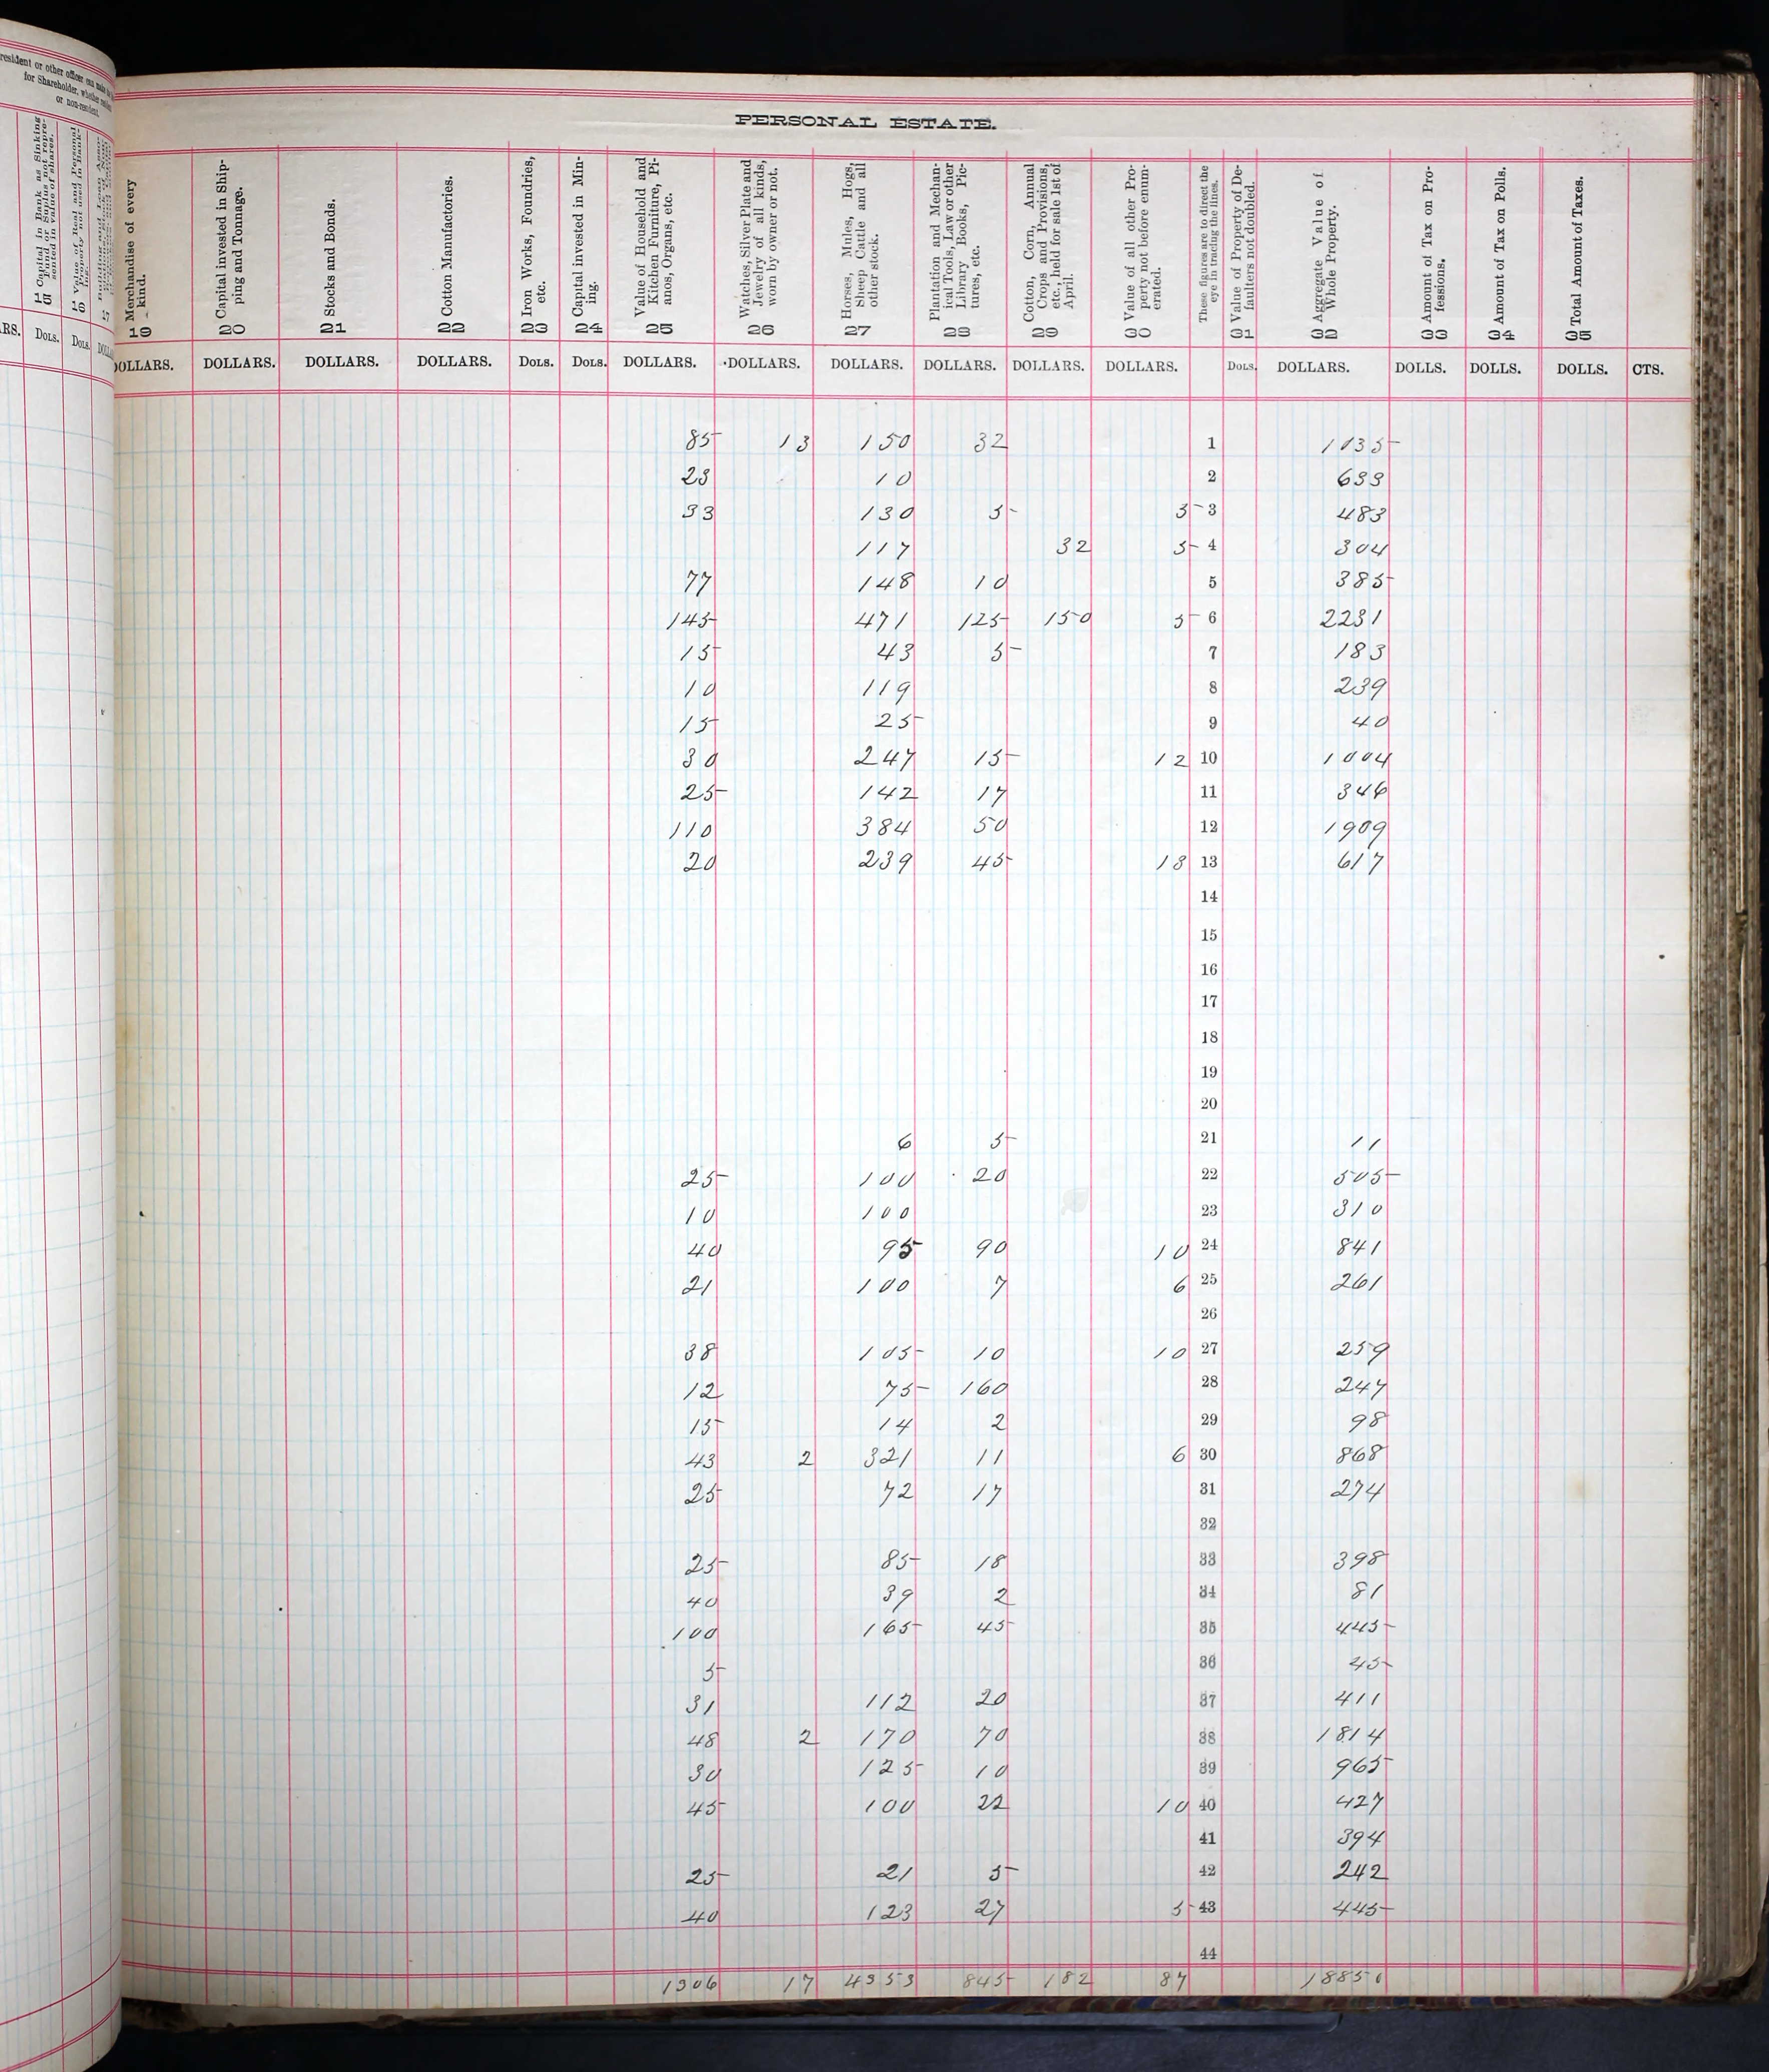 resident or other officer can make
for Shareholder, whether
or non-resident.
15 Capital in Bank as Sinking Fund or Suplus not represented in value of shares.
16 Value of Real and Personal Property not used in Banking.
ARS. DOLS. DOLS.
PERSONAL ESTATE.
19 Merchandise of every kind.
20 Capital invested in Shipping and Tonnage.
21 Stocks and Bonds.
22 Cotton Manufactories.
23 Iron Works, Foundries, etc.
24 Capital invested in Mining.
25 Value of Household and Kitchen Furniture, Pianos, Organs, etc.
26 Watches, Silver Plate and Jewelry of all kinds, worn by owner or not.
27 Horses, Mules, Hogs, Sheep Cattle and all other stock.
28 Plantation and Mechanical Tools, Law or other Library Books, Pictures, etc.
29 Cotton, Corn, Annual Crops and Provisions, etc., held for sale 1st of April.
30 Value of all other Property not before enumerated.
These figures are to direct the eye in tracing the lines.
31 Value of Property of Defaulters not doubled.
32 Aggregate Value of Whole Property.
33 Amount of Tax on Professions.
34 Amount of Tax on Polls.
35 Total Amount of Taxes.
DOLLARS. DOLLARS. DOLLARS. DOLLARS. DOLS. DOLS. DOLLARS. DOLLARS. DOLLARS. DOLLARS. DOLLARS. DOLLARS. DOLS. DOLLARS. DOLLS. DOLLS. DOLLS. CTS.
85 13 150 32 1 1035
23 10 2 633
33 130 5 5 3 483
117 32 5 4 304
77 148 10 5 385
145 471 125 150 5 6 2231
15 43 5 7 183
10 119 8 239
15 25 9 40
30 247 15 12 10 1004
25 142 17 11 346
110 384 50 12 1909
20 239 45 18 13 617
14
15
16
17
18
19
20
6 5 21 11
25 100 20 22 505
10 100 23 310
40 95 90 10 24 841
21 100 7 6 25 261
26
38 105 10 10 27 259
12 75 160 28 247
15 14 2 29 98
43 2 321 11 6 30 868
25 72 17 31 274
32
25 85 18 33 398
40 39 2 34 81
100 165 45 35 445
5 36 45
31 112 20 37 411
48 2 170 70 38 1814
30 125 10 39 965
45 100 22 10 40 427
41 394
25 21 5 42 242
40 123 27 5 43 445
44
1306 17 4353 845 182 87 18850